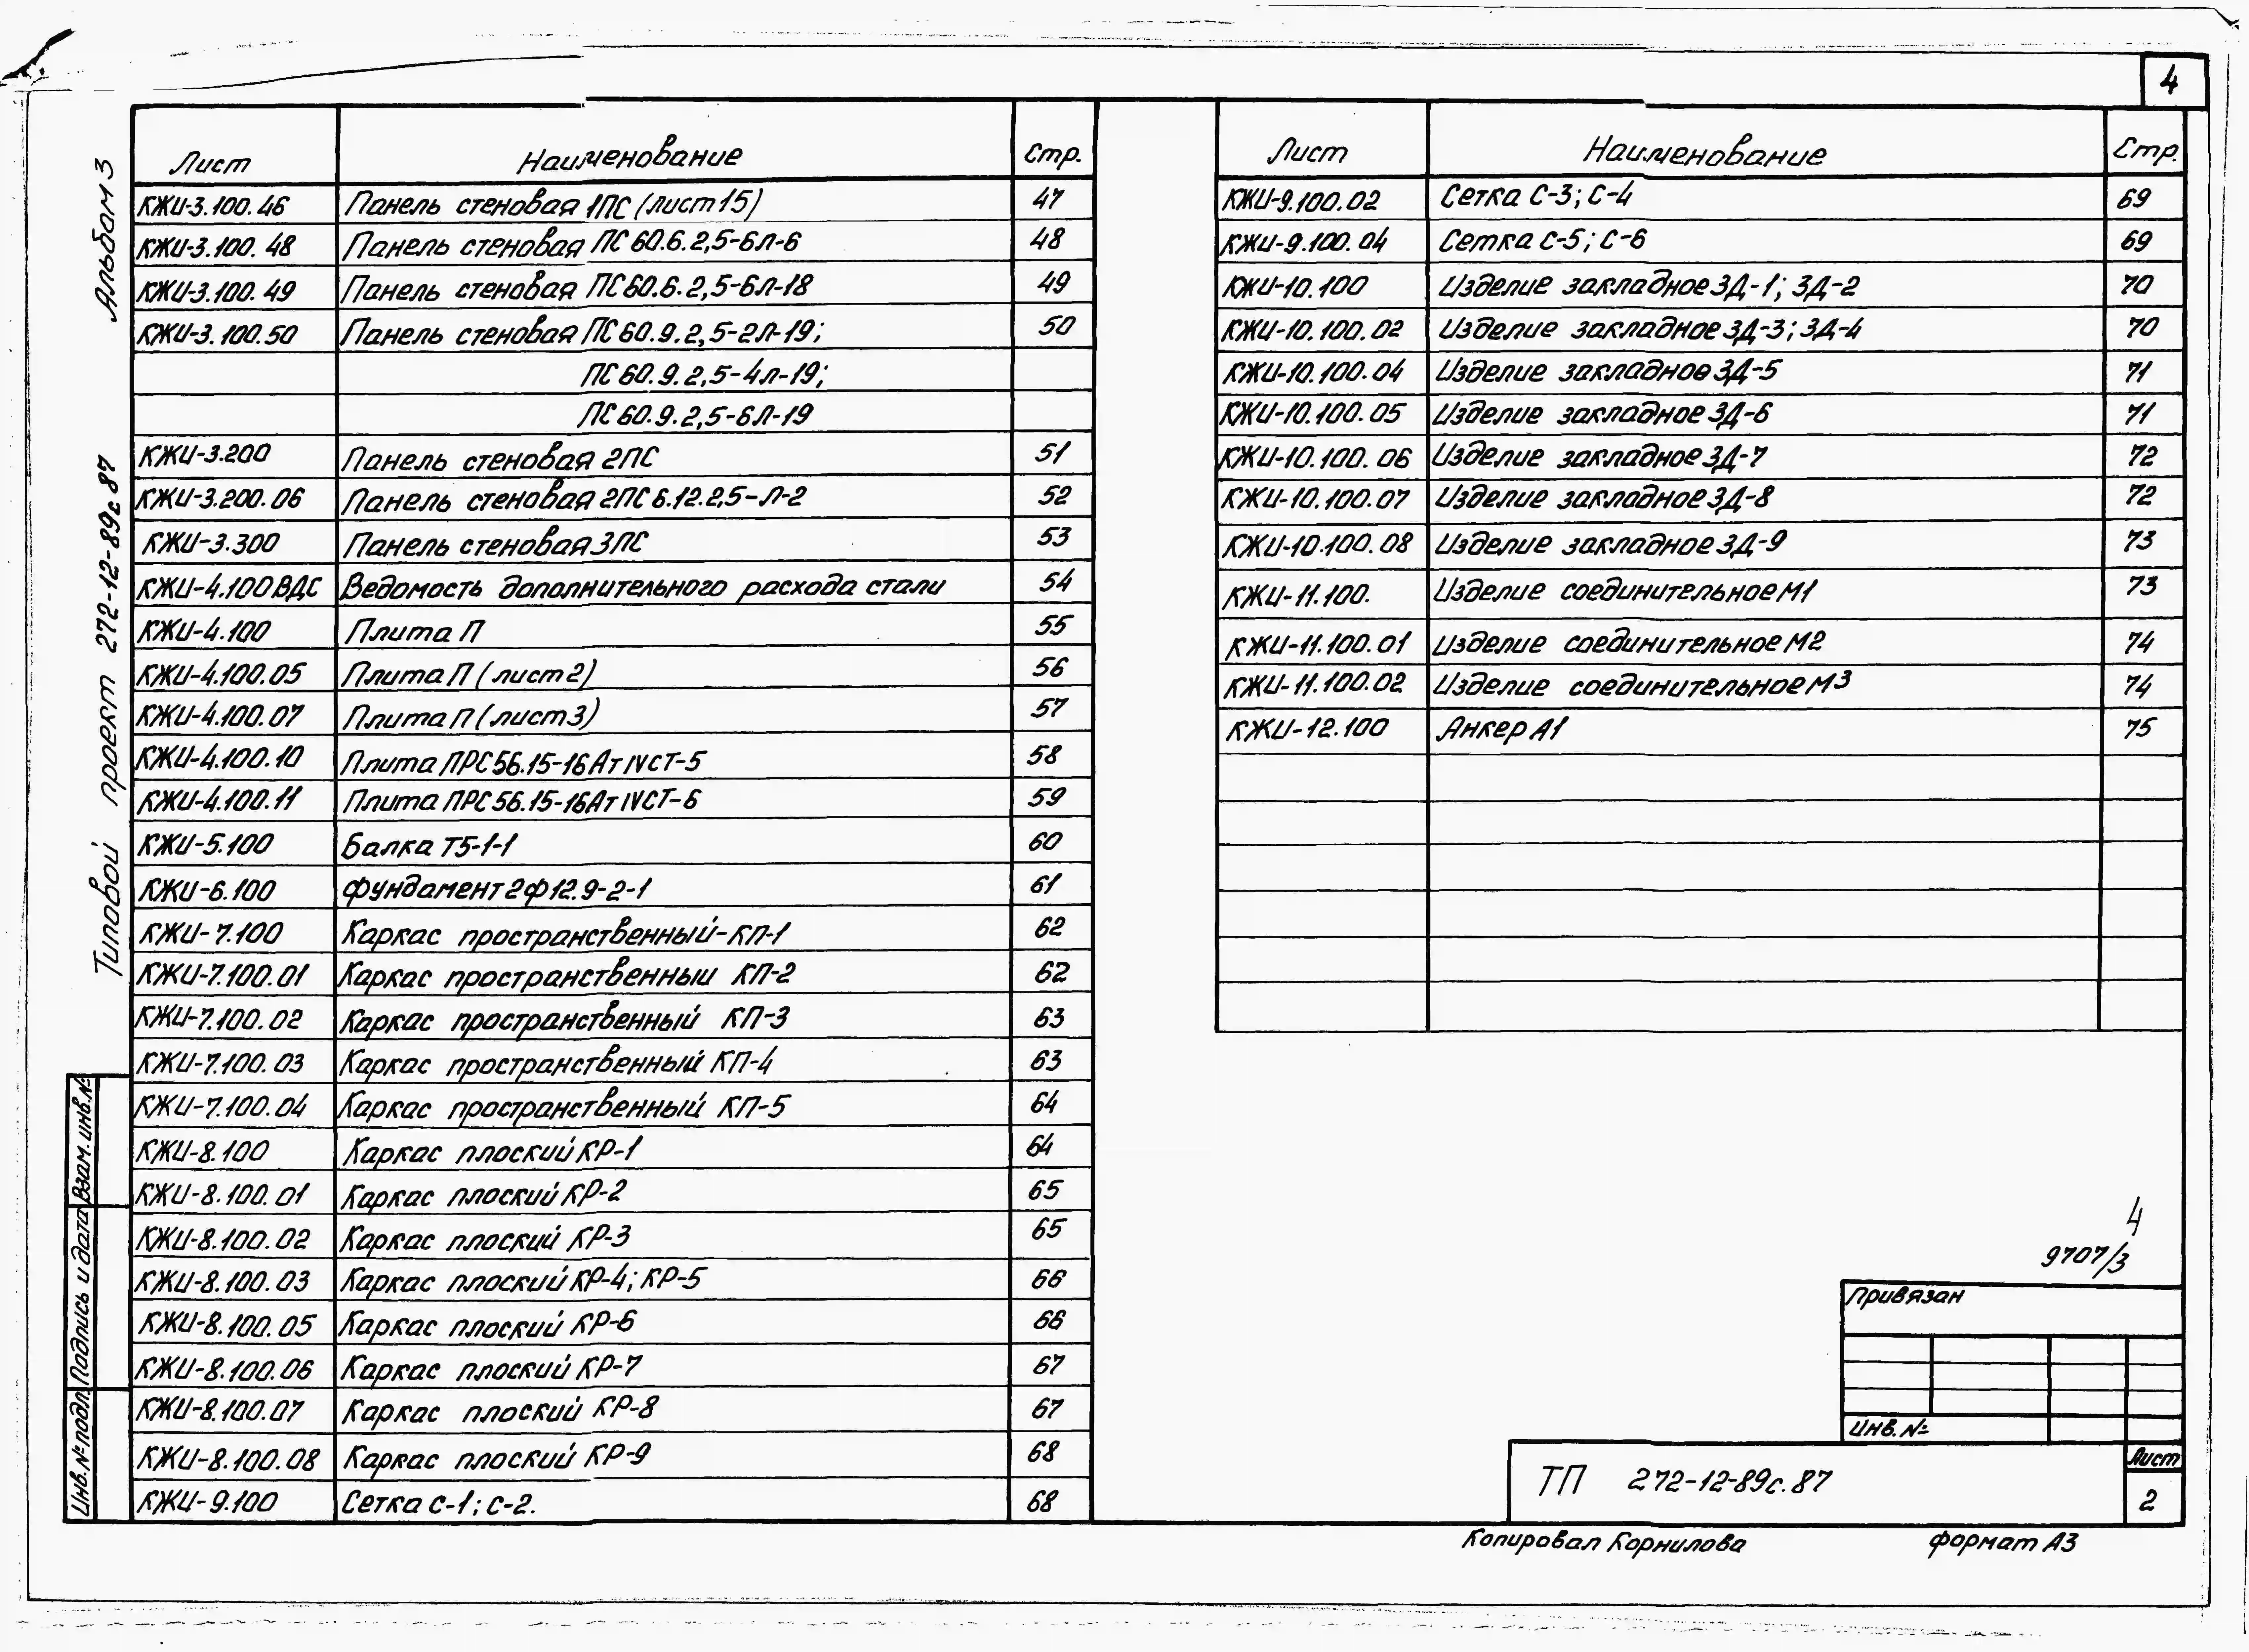 4
Альбом 3
Типовой проект 272-12-89с.87
Лист Наименование Стр.
КЖИ-3.100.46 Панель стеновая 1ПС (лист 15) 47
КЖИ-3.100.48 Панель стеновая ПС 60.6.2,5-6л-6 48
КЖИ-3.100.49 Панель стеновая ПС60.6.2,5-6л-18 49
КЖИ-3.100.50 Панель стеновая ПС 60.9.2,5-2л-19; 50
ПС 60.9.2,5-4л-19;
ПС 60.9.2,5-6л-19
КЖИ-3.200 Панель стеновая 2ПС 51
КЖИ-3.200.06 Панель стеновая 2ПС 6.12.2,5-Л-2 52
КЖИ-3.300 Панель стеновая 3ПС 53
КЖИ-4.100ВДС Ведомость дополнительного расхода стали 54
КЖИ-4.100 Плита П 55
КЖИ-4.100.05 Плита П (лист 2) 56
КЖИ-4.100.07 Плита П (лист 3) 57
КЖИ-4.100.10 Плита ПРС56.15-16АтIVСТ-5 58
КЖИ-4.100.11 Плита ПРС56.15-16АтIVСТ-6 59
КЖИ-5.100 Балка Т5-1-1 60
КЖИ-6.100 Фундамент 2Ф12.9-2-1 61
КЖИ-7.100 Каркас пространственный-КП-1 62
КЖИ-7.100.01 Каркас пространственный КП-2 62
КЖИ-7.100.02 Каркас пространственный КП-3 63
КЖИ-7.100.03 Каркас пространственный КП-4 63
КЖИ-7.100.04 Каркас пространственный КП-5 64
КЖИ-8.100 Каркас плоский КР-1 64
КЖИ-8.100.01 Каркас плоский КР-2 65
КЖИ-8.100.02 Каркас плоский КР-3 65
КЖИ-8.100.03 Каркас плоский КР-4; КР-5 66
КЖИ-8.100.05 Каркас плоский КР-6 66
КЖИ-8.100.06 Каркас плоский КР-7 67
КЖИ-8.100.07 Каркас плоский КР-8 67
КЖИ-8.100.08 Каркас плоский КР-9 68
КЖИ-9.100 Сетка С-1; С-2. 68
Лист Наименование Стр.
КЖИ-9.100.02 Сетка С-3; С-4 69
КЖИ-9.100.04 Сетка С-5; С-6 69
КЖИ-10.100 Изделие закладное ЗД-1; ЗД-2 70
КЖИ-10.100.02 Изделие закладное ЗД-3; ЗД-4 70
КЖИ-10.100.04 Изделие закладное ЗД-5 71
КЖИ-10.100.05 Изделие закладное ЗД-6 71
КЖИ-10.100.06 Изделие закладное ЗД-7 72
КЖИ-10.100.07 Изделие закладное ЗД-8 72
КЖИ-10.100.08 Изделие закладное ЗД-9 73
КЖИ-11.100. Изделие соединительное М1 73
КЖИ-11.100.01 Изделие соединительное М2 74
КЖИ-11.100.02 Изделие соединительное М3 74
КЖИ-12.100 Анкер А1 75
Взам.инв.№
Подпись и дата
Инв.№ подл.
4
9707/3
Привязан
Инв.№
ТП 272-12-89с.87
Лист
2
Копировал Корнилова
формат А3